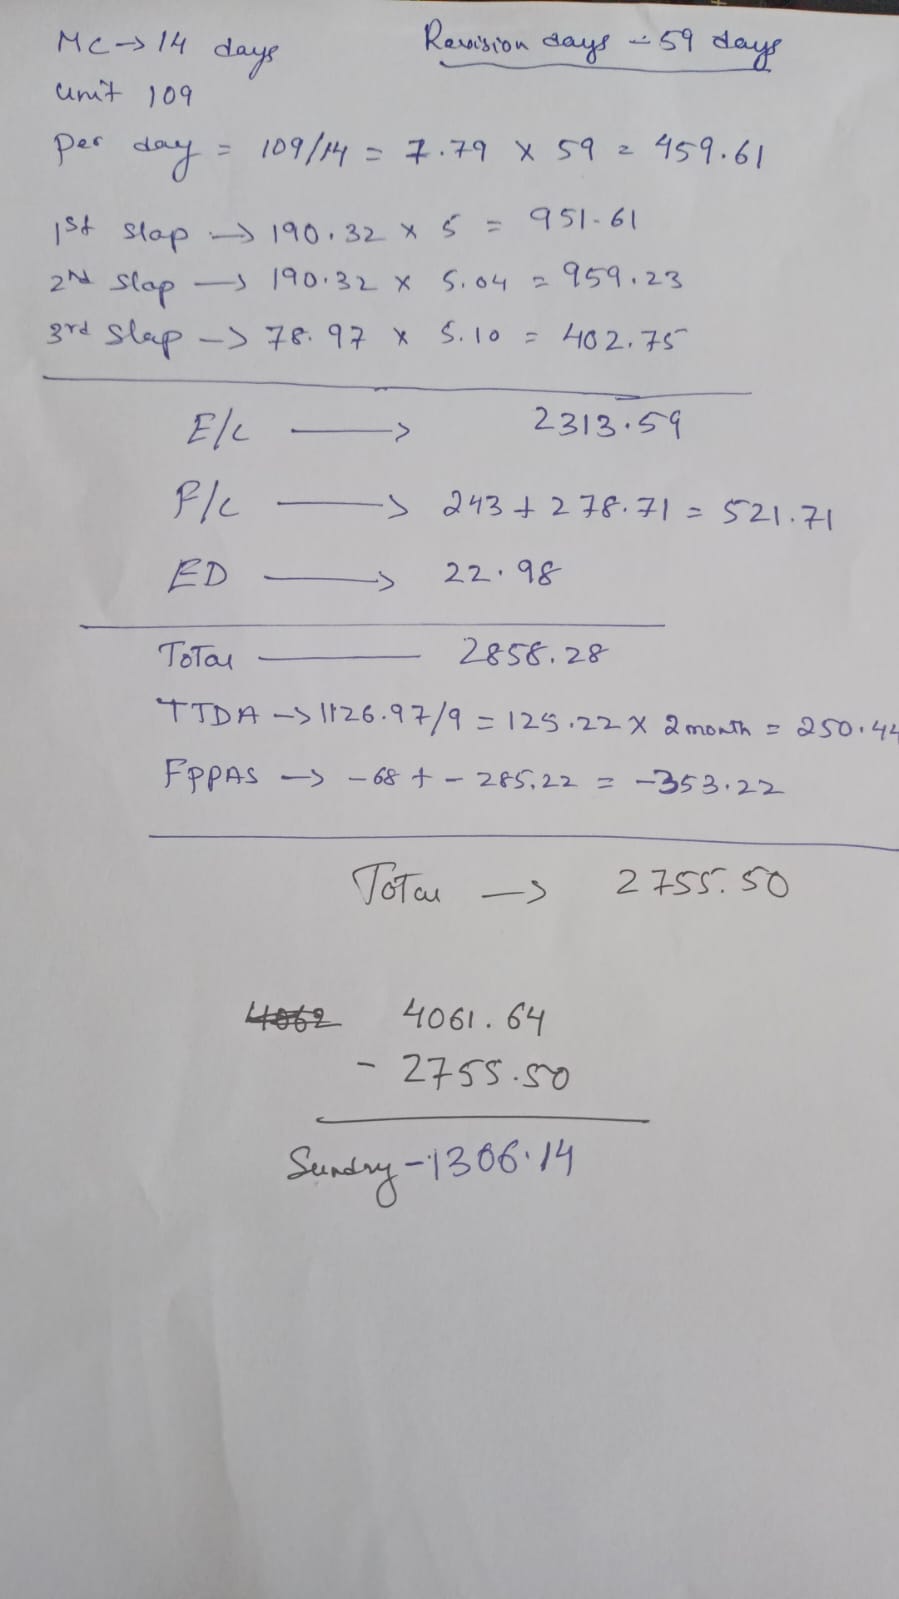 MC → 14 days
Revision days - 59 days
unit 109
per day = 109/14 = 7.79 x 59 = 459.61
1st slap → 190.32 x 5 = 951.61
2nd slap → 190.32 x 5.04 = 959.23
3rd slap → 78.97 x 5.10 = 402.75
E/C → 2313.59
F/C → 243 + 278.71 = 521.71
ED → 22.98
Total — 2858.28
TTDA → 1126.97/9 = 125.22 x 2 month = 250.44
FPPAS → -68 + - 285.22 = -353.22
Total → 2755.50
4061.64
- 2755.50
Sundry - 1306.14